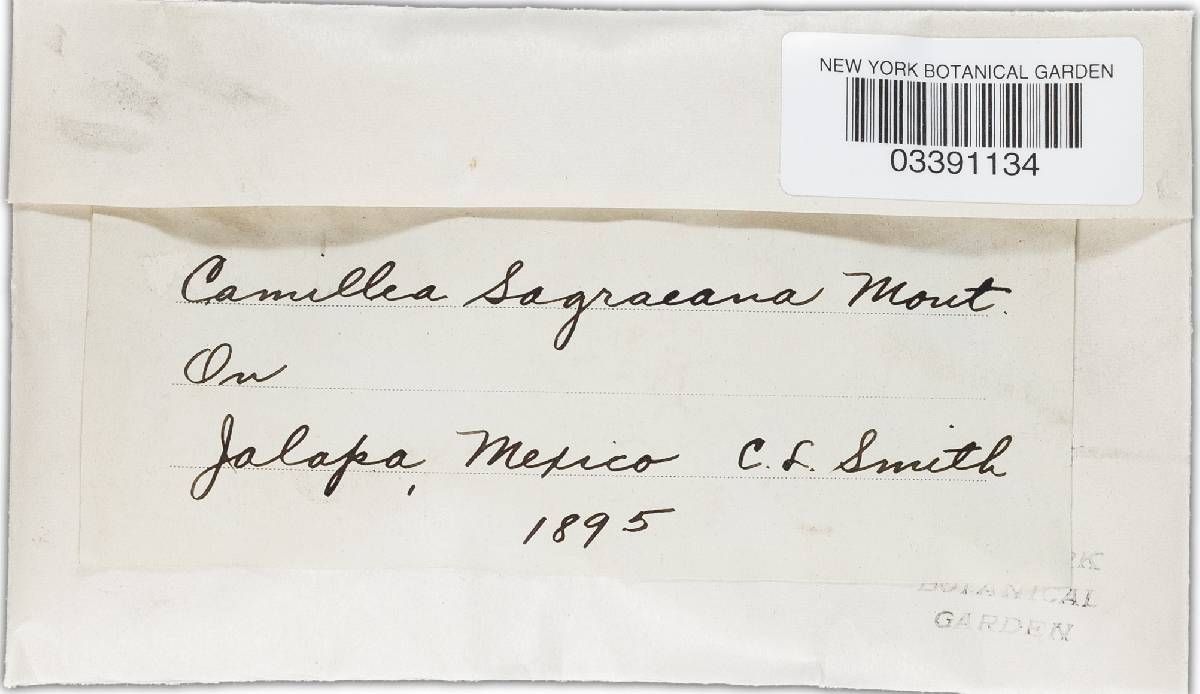 NEW YORK BOTANICAL GARDEN
03391134
Camillea Sagraeana Mont.
On
Jalapa, Mexico C. L. Smith
1895
BOTANICAL
GARDEN